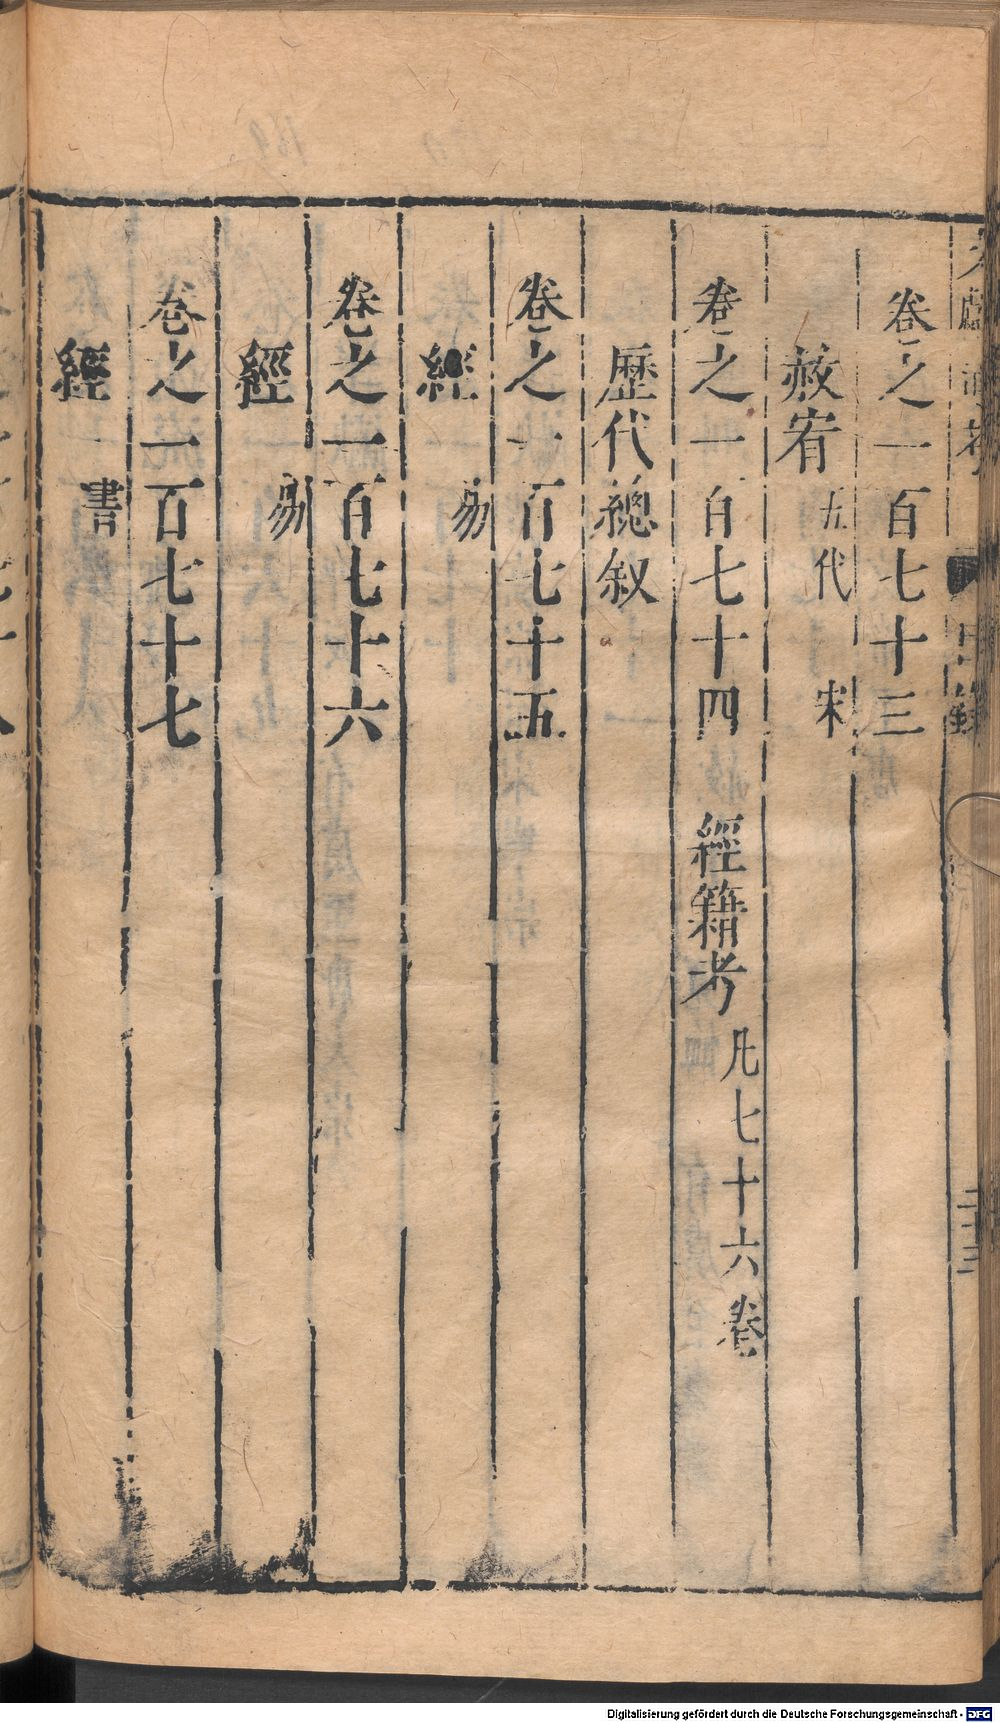 卷之一百七十三
赦宥 五代 宋
卷之一百七十四 經籍考 凡七十六卷
歷代總叙
卷之一百七十五
經 易
卷之一百七十六
經 易
卷之一百七十七
經 書
Digitalisierung gefördert durch die Deutsche Forschungsgemeinschaft - DFG